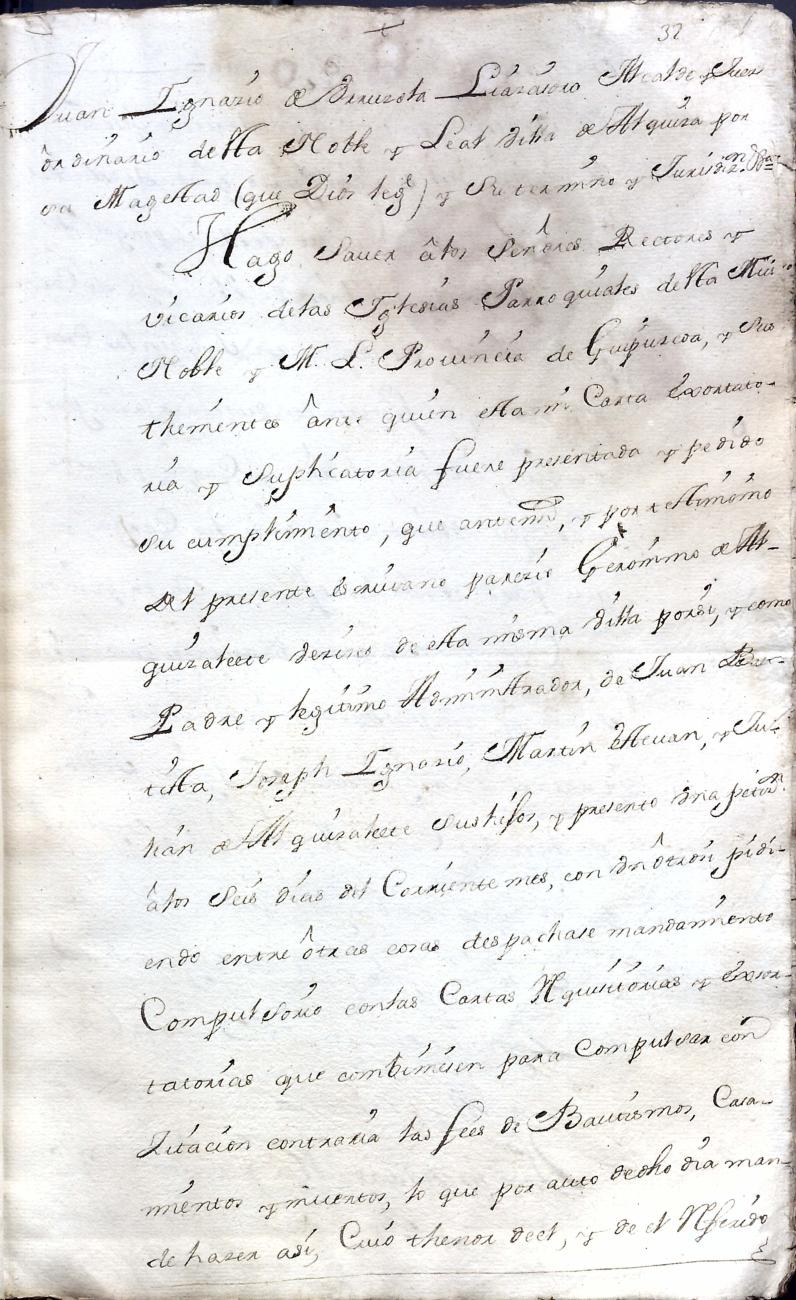 32
Juan Ignazio de Liazasoro Alcalde y Juez
ôrdinario desta Noble y Leal Villa de Alquiza por
su Magestad (que Dios leg^e) y su termino y Jurisdiz^on
Hago saver âlos señôres Rectores y
vicarios delas Iglesias Parroquiales desta Mui
Noble y M. L. Provincia de Guipuzcoa, y sus
thenientes ânte quien esta mi Carta êxortato-
ria y Suplicatoria fuere presentada y pedido
su cumplimiento, que antemi, y por testimonio
del presente escrivano parezio Geronimo de Al-
quizaleete vezino de esta misma villa porsi, y como
Padre y legitimo Administrador, de Juan Bau-
tista, Joseph Ignazio, Martin estevan, y Ju-
lian de Alquizaleete sus hijos, y presento vna petiz^on
âlos seis dias del Corriente mes, con vn ôtrosi, pidi-
endo entre ôtras cosas despachase mandamiento
Compulsorio conlas Cartas Rquisitorias y êxsor-
tatorias que combiniesen para Compulsar con
Zitacion contraria las fees de Bautismos, Casa-
mientos y muertos, lo que por auto de dho dia man-
de hazer asi, Cuio thenor deel, y de el Rferido